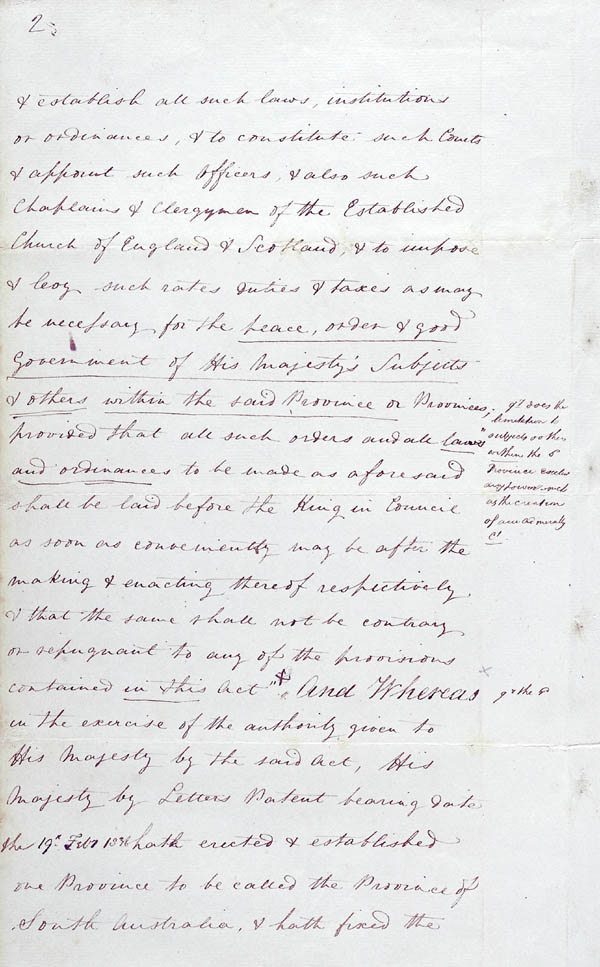 2
& establish all such laws, institutions
or ordinances, & to constitute such Courts
& appoint such officers, & also such
Chaplains & Clergymen of the Established
Church of England & Scotland, & to impose
& levy such rates duties & taxes as may
be necessary for the peace, order & good
Government of His Majesty's Subjects
& others within the said Province or Provinces,
provided that all such orders and all laws
and ordinances to be made as aforesaid
shall be laid before the King in Council
as soon as conveniently may be after the
making & enacting thereof respectively
& that the same shall not be contrary
or repugnant to any of the provisions
contained in this Act" And Whereas
in the exercise of the authority given to
His Majesty by the said Act, His
Majesty by Letters Patent bearing date
the 19th Feby 1836 hath erected & established
one Province to be called the Province of
South Australia, & hath fixed the
qy does the
limitation to
subjects or others
within the
Province
any power such
as the creation
of
qy the